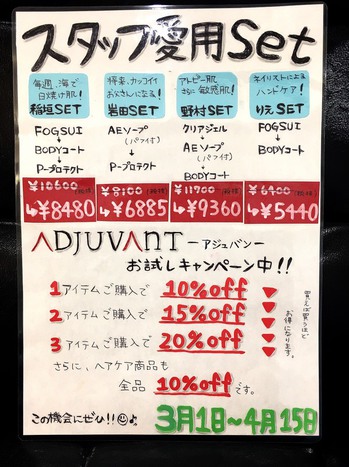 スタッフ愛用Set
毎週、海で
日焼け肌!
稲垣SET
FOGSUI
↓
BODYコート
↓
P-プロテクト
¥10600(税抜)
↳¥8480
将来、カッコイイ
お父さんになる!
岩田SET
AEソープ
(パフ付)
↓
P-プロテクト
¥8100(税抜)
↳¥6885
アトピー肌
さらに敏感肌!
野村SET
クリアジェル
↓
AEソープ
(パフ付)
↓
BODYコート
¥11700(税抜)
↳¥9360
ネイリストによる
ハンドケア!
りえSET
FOGSUI
↓
BODYコート
¥6400(税抜)
↳¥5440
ADJUVANT -アジュバン-
お試しキャンペーン中!!
1アイテムご購入で 10%off
2アイテムご購入で 15%off
3アイテムご購入で 20%off
買えば買うほど
お得になります。
さらに、ヘアケア商品も
全品 10%offです。
この機会にぜひ!!☺♪
3月1日~4月15日